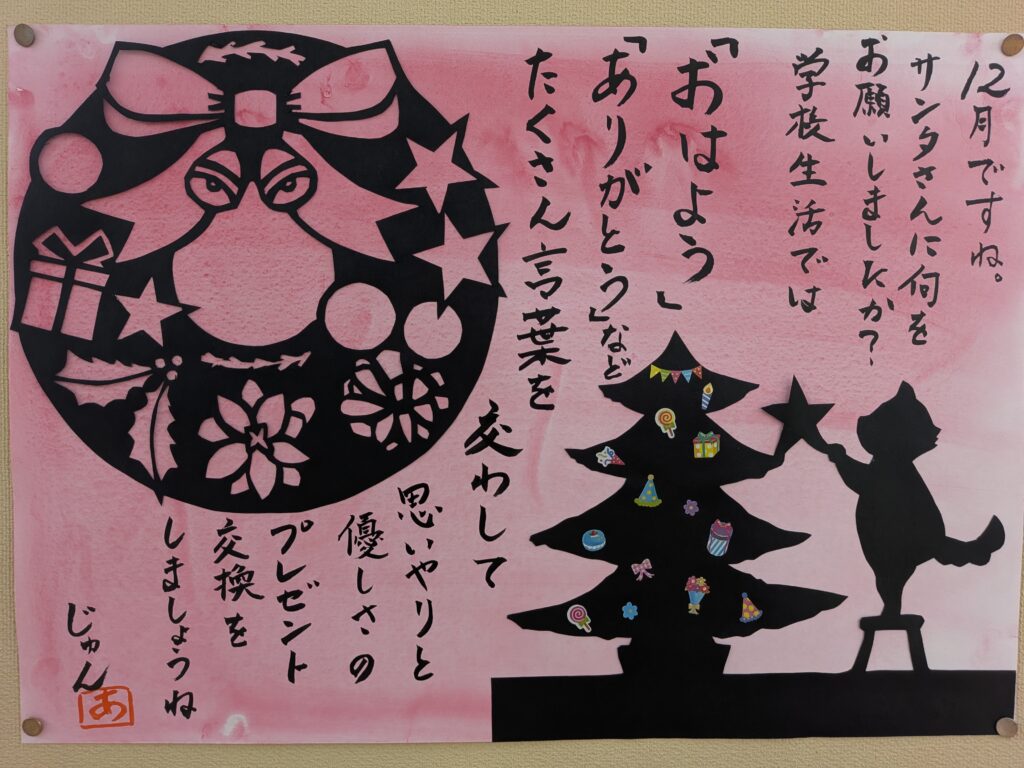 12月ですね。
サンタさんに何を
お願いしましたか?
学校生活では
「おはよう」
「ありがとう」など
たくさん言葉を
交わして
思いやりと
優しさの
プレゼント
交換を
しましょうね
じゅん
あ